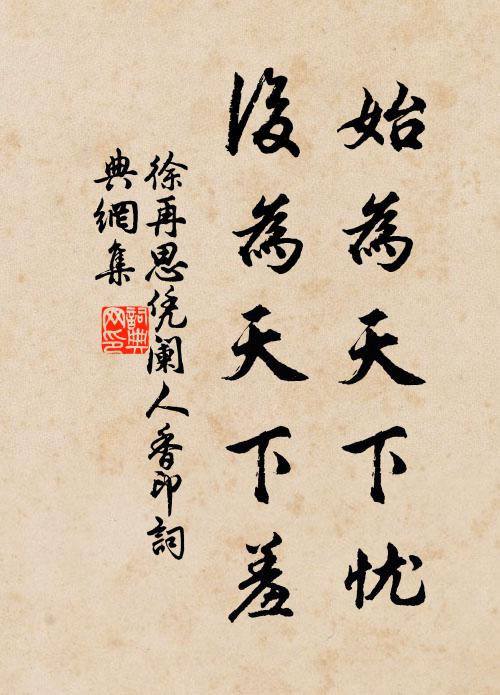 始為天下忧
後為天下羞
徐再思凭阑人香印詞
典網集
詞典网印